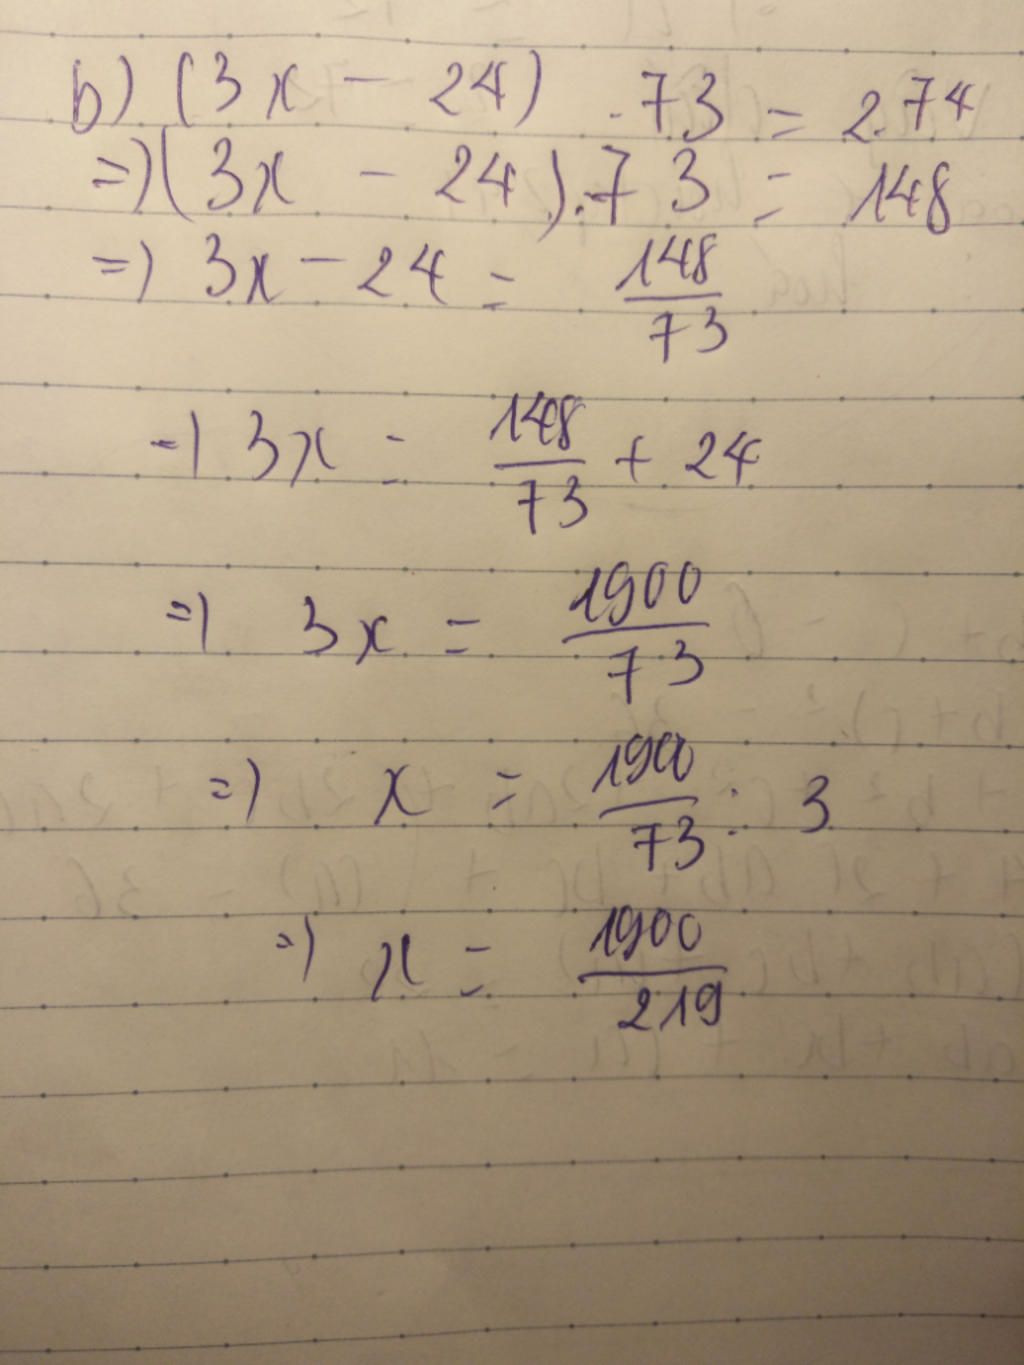 b) (3x - 24) . 73 = 2.74
=) (3x - 24).73 = 148
=) 3x - 24 = 148/73
=) 3x = 148/73 + 24
=) 3x = 1900/73
=) x = 1900/73 : 3
=) x = 1900/219